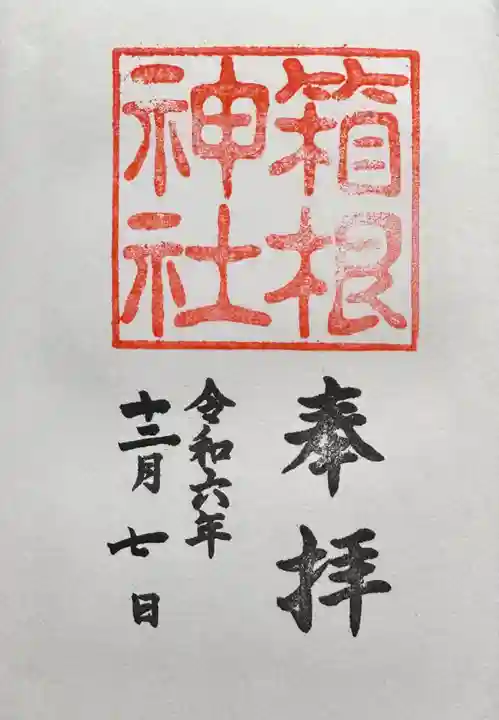 箱根
神社
奉拝
令和六年
十二月七日